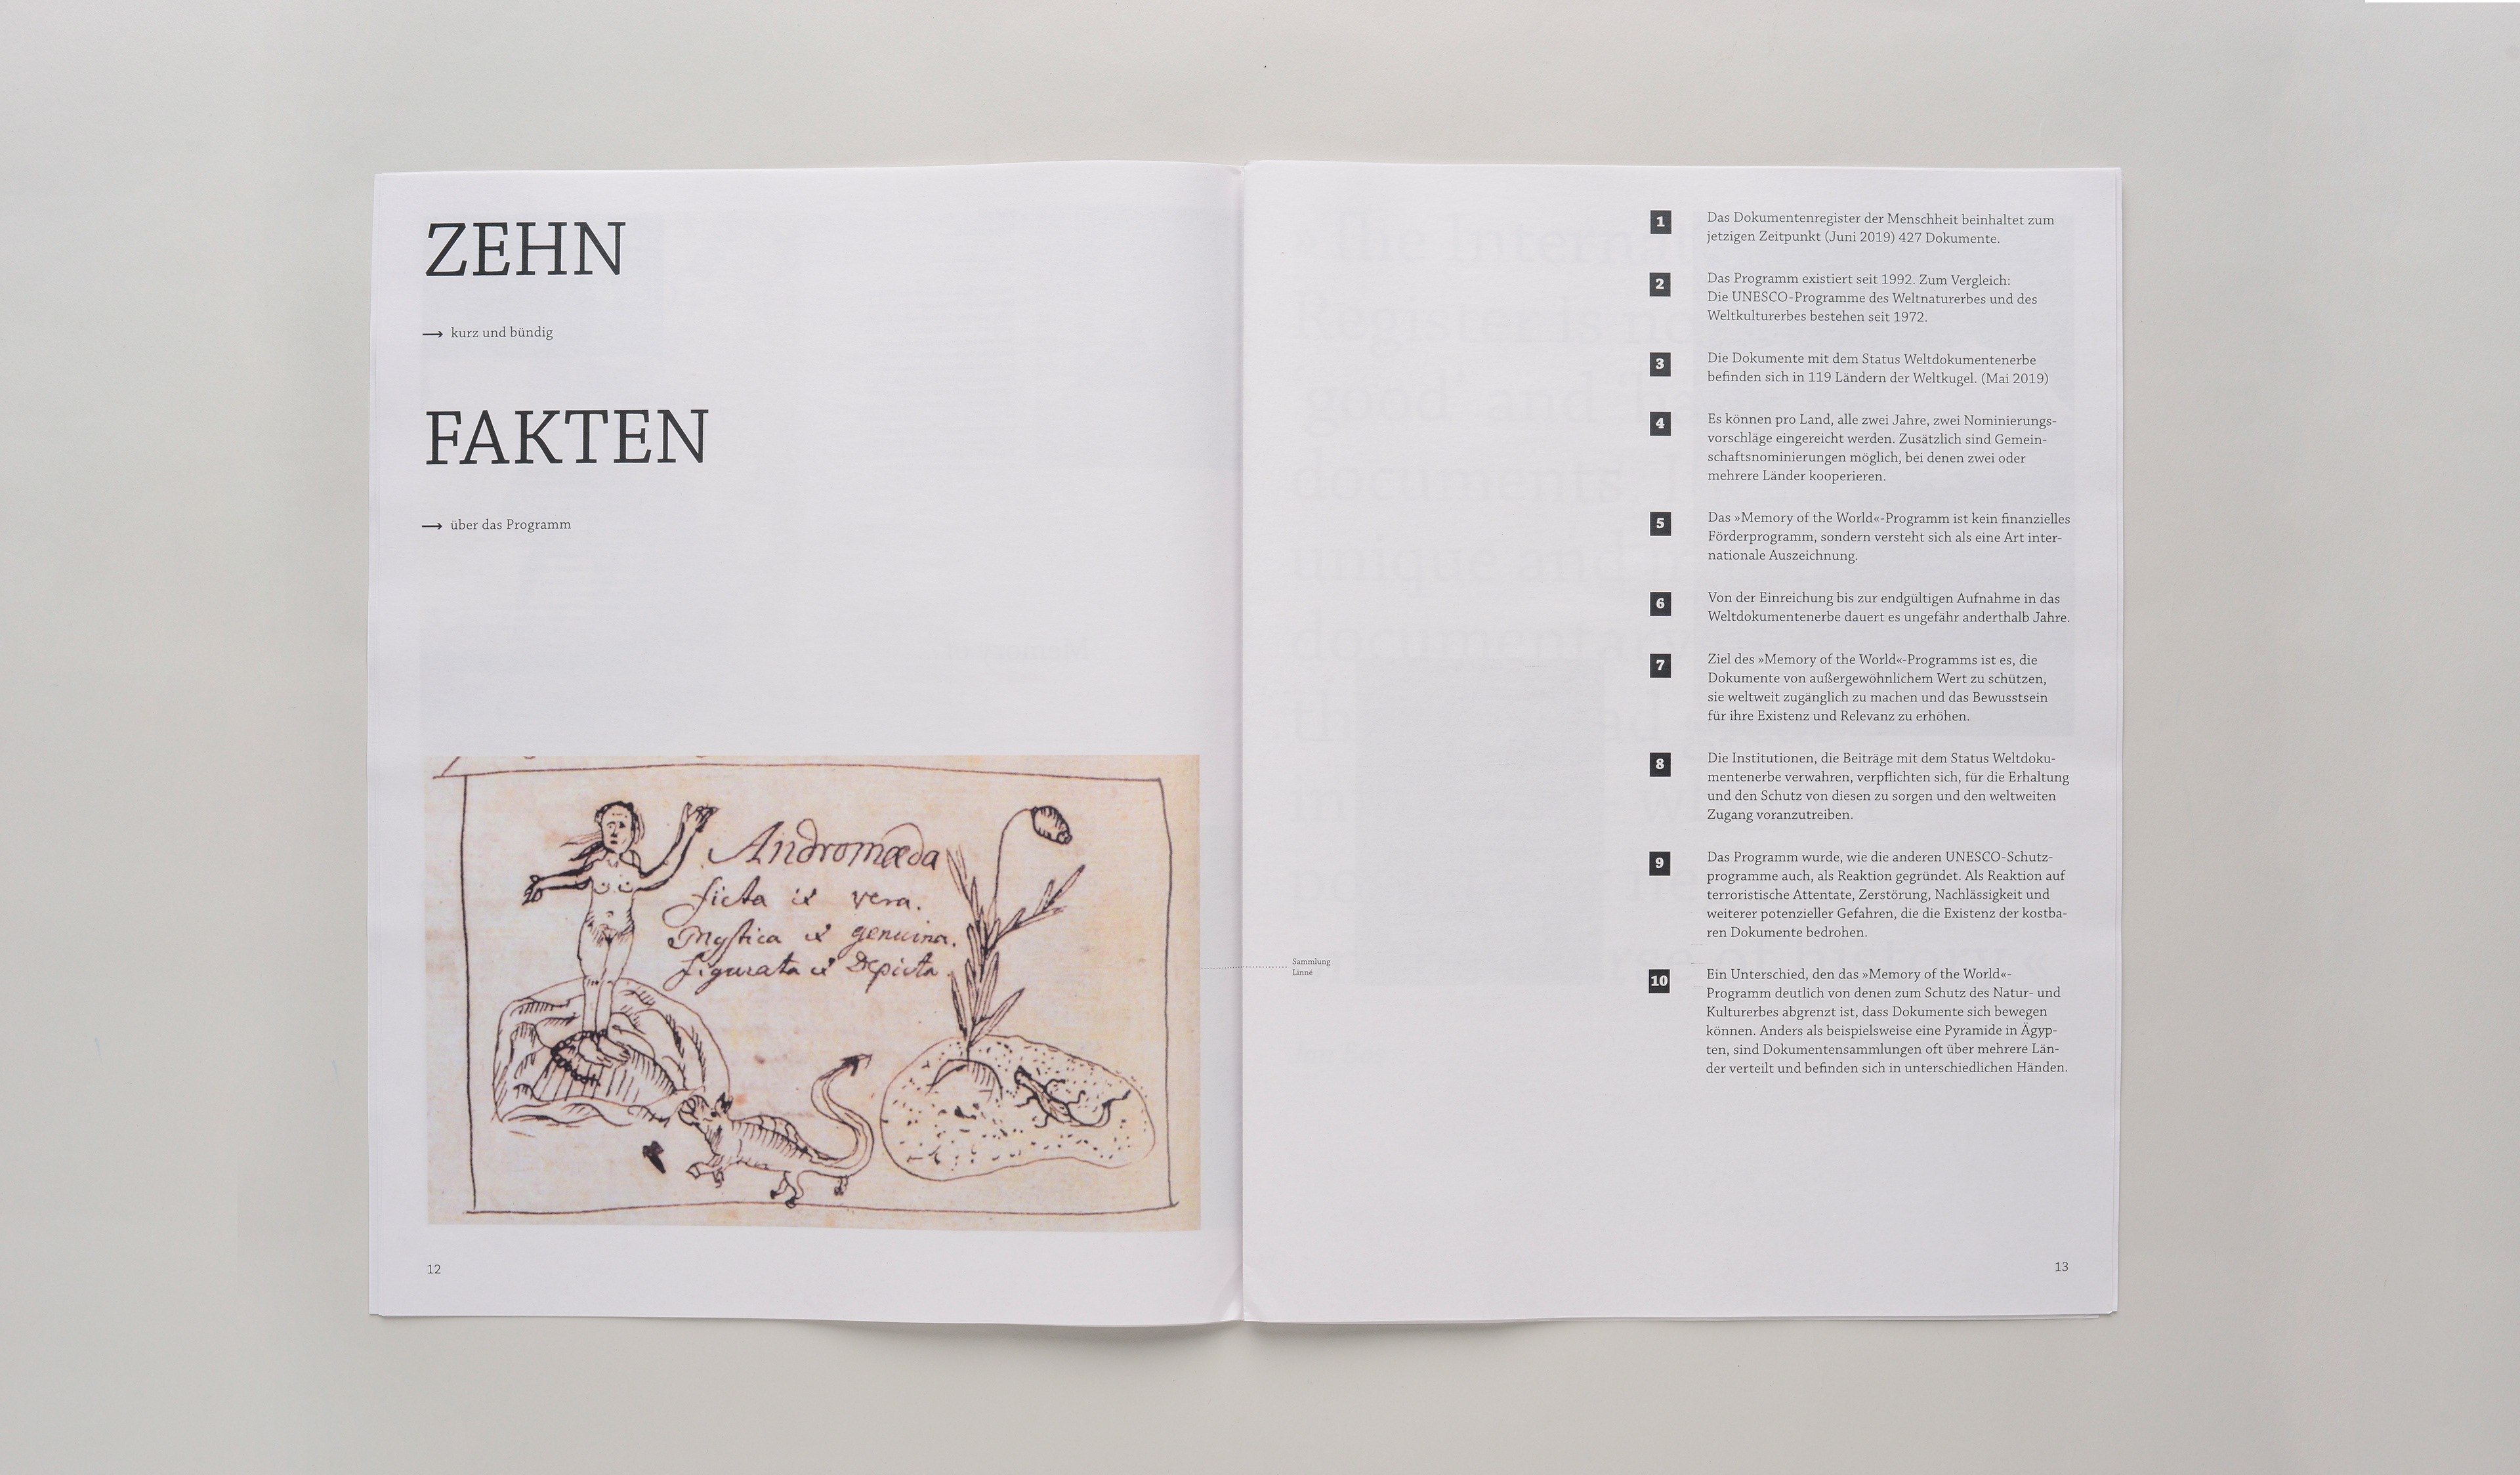 ZEHN
→ kurz und bündig
FAKTEN
→ über das Programm
Andromæda
ficta et vera.
Mystica et genuina.
figurata et Depicta.
12
Sammlung
Linné
1
Das Dokumentenregister der Menschheit beinhaltet zum
jetzigen Zeitpunkt (Juni 2019) 427 Dokumente.
2
Das Programm existiert seit 1992. Zum Vergleich:
Die UNESCO-Programme des Weltnaturerbes und des
Weltkulturerbes bestehen seit 1972.
3
Die Dokumente mit dem Status Weltdokumentenerbe
befinden sich in 119 Ländern der Weltkugel. (Mai 2019)
4
Es können pro Land, alle zwei Jahre, zwei Nominierungs-
vorschläge eingereicht werden. Zusätzlich sind Gemein-
schaftsnominierungen möglich, bei denen zwei oder
mehrere Länder kooperieren.
5
Das »Memory of the World«-Programm ist kein finanzielles
Förderprogramm, sondern versteht sich als eine Art inter-
nationale Auszeichnung.
6
Von der Einreichung bis zur endgültigen Aufnahme in das
Weltdokumentenerbe dauert es ungefähr anderthalb Jahre.
7
Ziel des »Memory of the World«-Programms ist es, die
Dokumente von außergewöhnlichem Wert zu schützen,
sie weltweit zugänglich zu machen und das Bewusstsein
für ihre Existenz und Relevanz zu erhöhen.
8
Die Institutionen, die Beiträge mit dem Status Weltdoku-
mentenerbe verwahren, verpflichten sich, für die Erhaltung
und den Schutz von diesen zu sorgen und den weltweiten
Zugang voranzutreiben.
9
Das Programm wurde, wie die anderen UNESCO-Schutz-
programme auch, als Reaktion gegründet. Als Reaktion auf
terroristische Attentate, Zerstörung, Nachlässigkeit und
weiterer potenzieller Gefahren, die die Existenz der kostba-
ren Dokumente bedrohen.
10
Ein Unterschied, den das »Memory of the World«-
Programm deutlich von denen zum Schutz des Natur- und
Kulturerbes abgrenzt ist, dass Dokumente sich bewegen
können. Anders als beispielsweise eine Pyramide in Ägyp-
ten, sind Dokumentensammlungen oft über mehrere Län-
der verteilt und befinden sich in unterschiedlichen Händen.
13